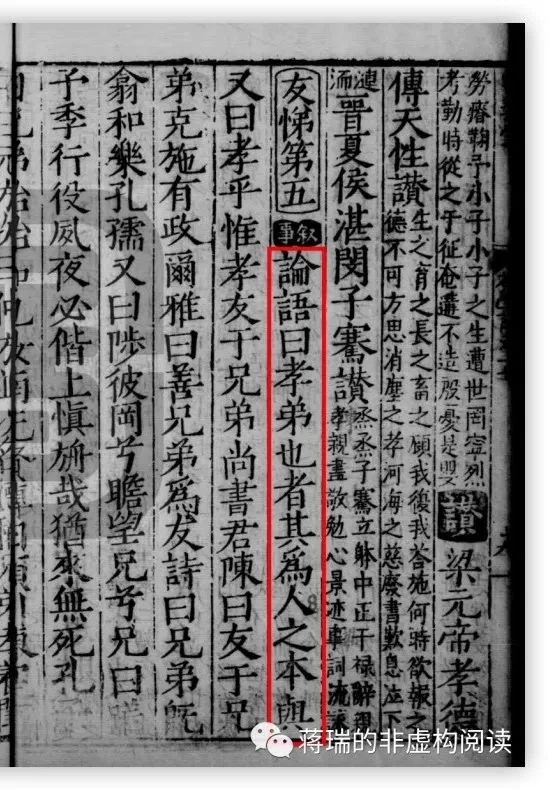 勞瘠鞠予小子小子之生遭世罔寧烈
考勤時從之于征奄遘不造殷憂是嬰
讃梁元帝孝德
傳天性讃
生之育之長之畜之顧我復我荅施何時欲報之
德不可方思涓塵之孝河海之慈廢書歎息泣下
漣洏晉夏侯湛閔子騫讃
烝烝子騫立躰中正干禄辭親
孝親盡敬勉心景迹詞流詠
友悌第五叙事論語曰孝弟也者其爲人之本歟
又曰孝乎惟孝友于兄弟尚書君陳曰友于兄
弟克施有政爾雅曰善兄弟爲友詩曰兄弟旣
翕和樂孔孺又曰陟彼岡兮瞻望兄兮兄曰嗟
予季行役夙夜必偕上慎旃哉猶來無死孔
蒋瑞的非虚构阅读